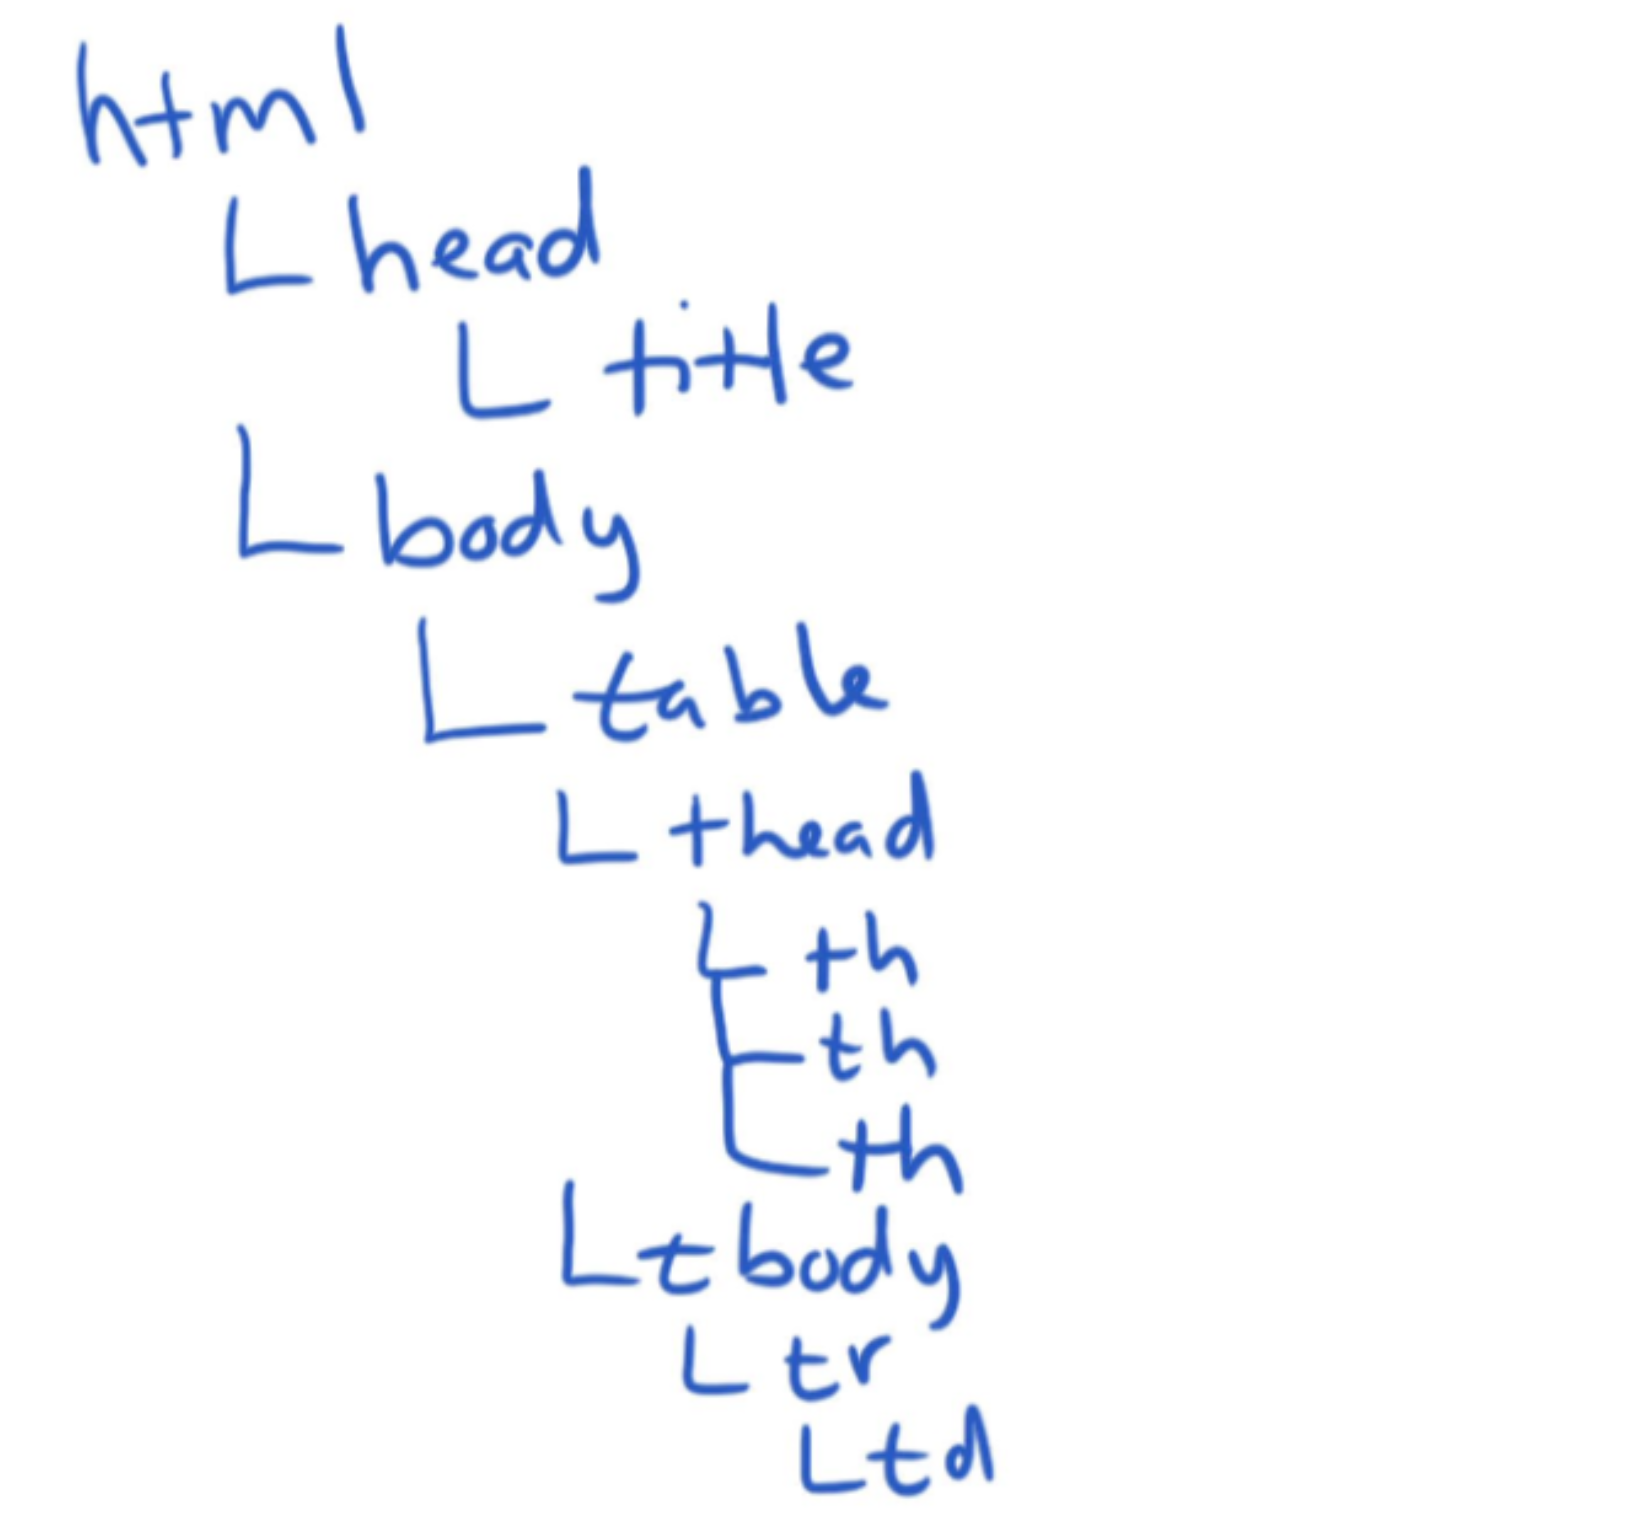 html
head
title
body
table
thead
th
th
th
tbody
tr
td